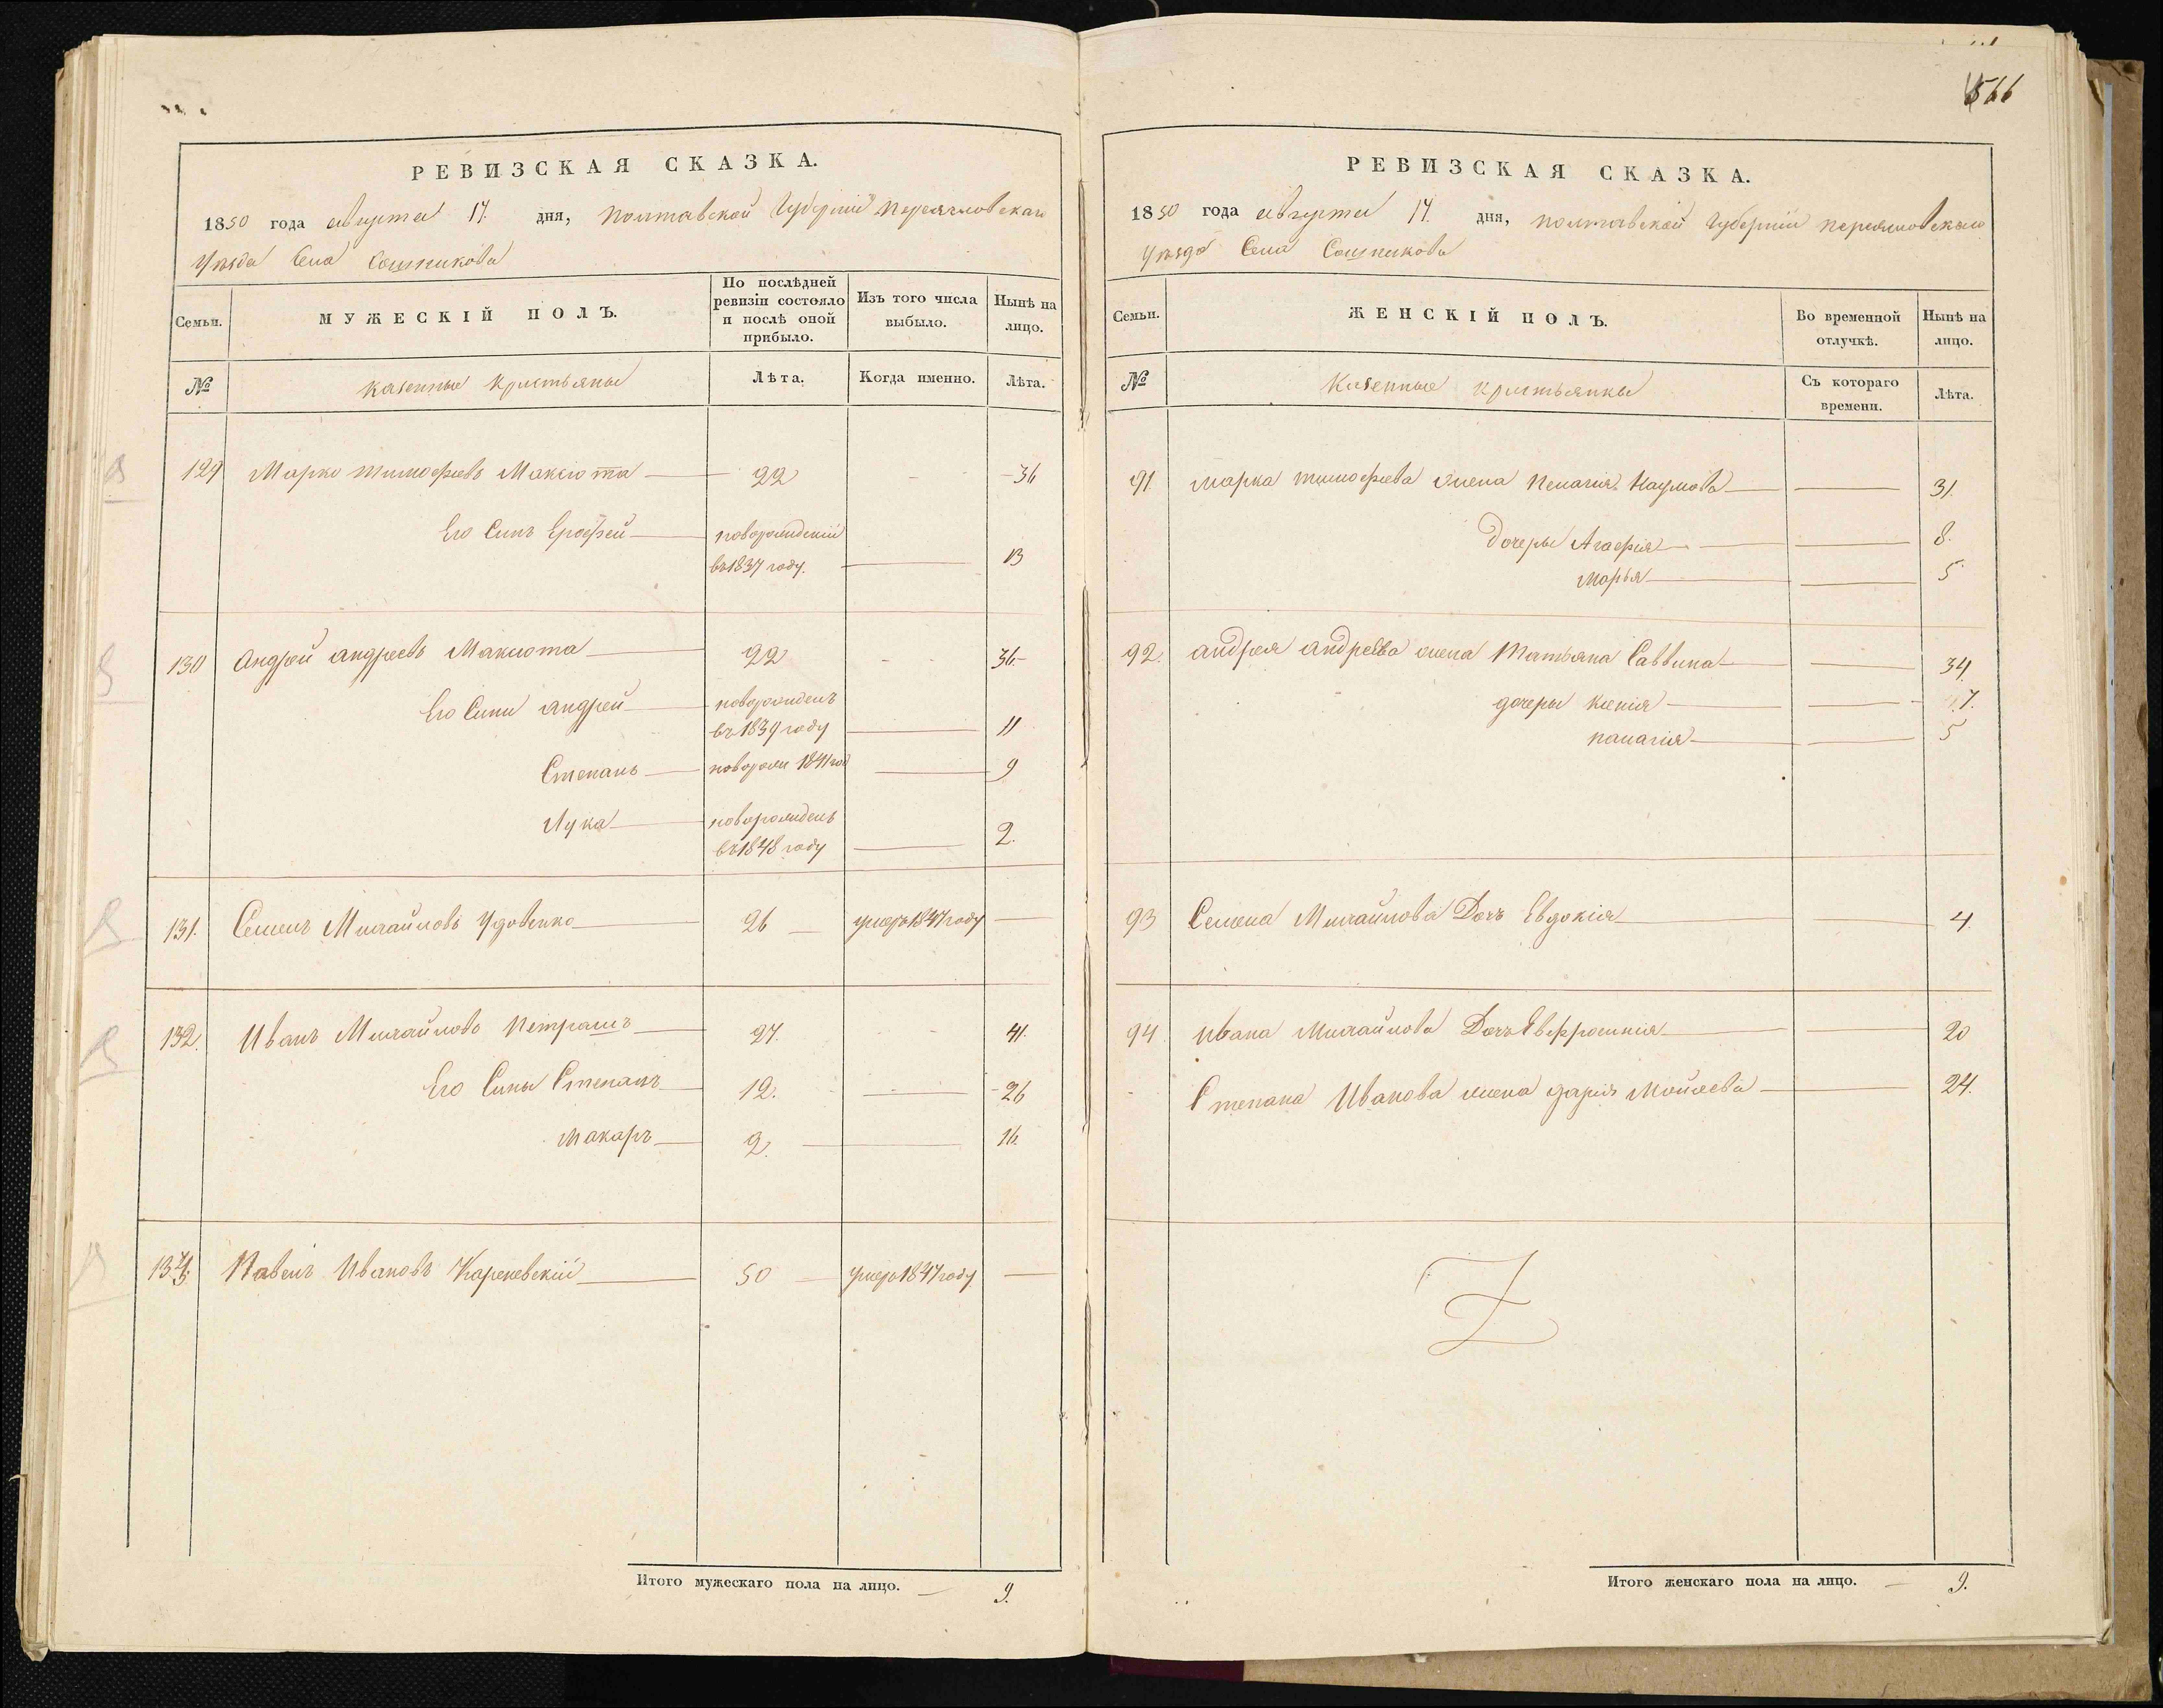 566
РЕВИЗСКАЯ СКАЗКА.
1850 года августа 14. дня, Полтавской Губерніи Переяславскаго
Уезда Села Сошникова
Семьи.
МУЖЕСКІЙ ПОЛЪ.
По послѣдней ревизіи состояло и послѣ оной прибыло.
Изъ того числа выбыло.
Нынѣ на лицо.
№
казенные крестьяне
Лѣта.
Когда именно.
Лѣта.
129 Марко тимофеевъ Максюта 22 36
Его Синъ Ерофей новорожденій
въ 1837 году. 13
130 Андрей андреевъ Максюта 22 36
Его Сини андрей новорожденъ
въ 1839 году 11
Степанъ новорож 1841 год 9
Лука новорожденъ
въ 1848 году 2.
131. Семенъ Михайловъ Удовенко 26 умеръ 1847 году
132. Иванъ Михайловъ Петрашъ 27. 41.
Его Сины Степанъ 12. 26
Макаръ 2. 16.
133. Павелъ Ивановъ Кареневскій 50 умеръ 1847 году
Итого мужескаго пола на лицо. 9.
РЕВИЗСКАЯ СКАЗКА.
1850 года августа 14. дня, Полтавской Губерніи Переяславскаго
Уезда Села Сошникова
Семьи.
ЖЕНСКІЙ ПОЛЪ.
Во временной отлучкѣ.
Нынѣ на лицо.
№
Казенные крестьянки
Съ котораго времени.
Лѣта.
91. Марка тимофеева жена Пелагія Наумова 31.
Дочеры Агафія 8.
Марья 5
92. андрея андреева жена Татьяна Саввина 34.
дочеры Ксенія 7.
палагія 5
93 Семена Михайлова Дочъ Евдокія 4.
94 Ивана Михайлова Дочъ Евфросинія 20
Степана Иванова жена дарія Мойсеева 24.
Итого женскаго пола на лицо. 9.